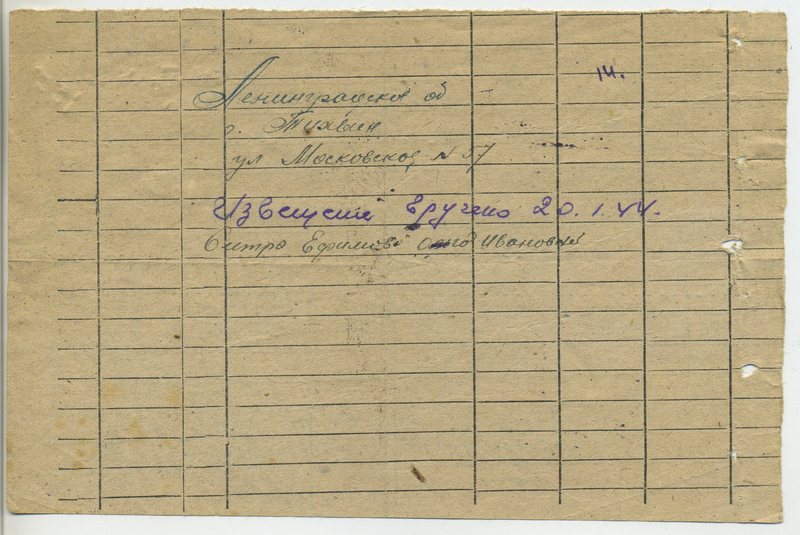 14.
Ленинградская об
г. Тихвин
ул Московская N 57
Извещение вручено 20.1.44.
Сестра Ефимова Ольга Ивановна